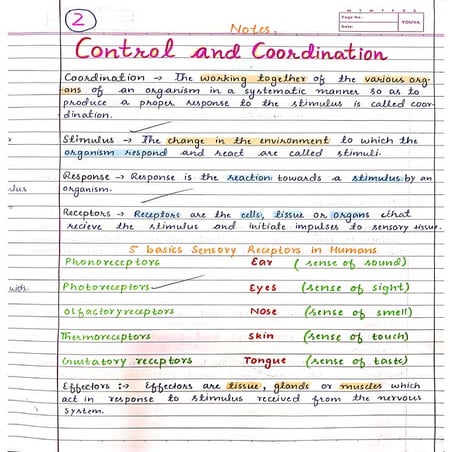 2
M T W T F S S
Page No.:
Date:
YOUVA
Notes.
Control and Coordination
Coordination → The working together of the various org-
ans of an organism in a systematic manner so as to
produce a proper response to the stimulus is called coor-
dination.
Stimulus → The change in the environment to which the
organism respond and react are called stimuli.
Response → Response is the reaction towards a stimulus by an
organism.
Receptors → Receptors are the cells, tissue or organs that
recieve the stimulus and initiate impulses to sensory tissue.
5 basics Sensory Receptors in Humans
Phonoreceptors Ear (sense of sound)
Photoreceptors Eyes (sense of sight)
olfactoryreceptors Nose (sense of smell)
Thermoreceptors Skin (sense of touch)
Gustatory receptors Tongue (sense of taste)
Effectors :→ Effectors are tissue, glands or muscles which
act in response to stimulus received from the nervous
system.